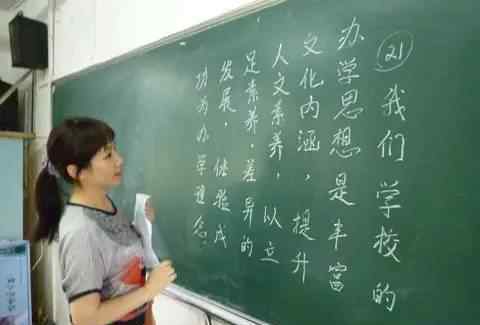 (21) 我们学校的
办学思想是丰富
文化内涵，提升
人文素养，以立
足素养，差异的
发展，体验成
功为办学理念。